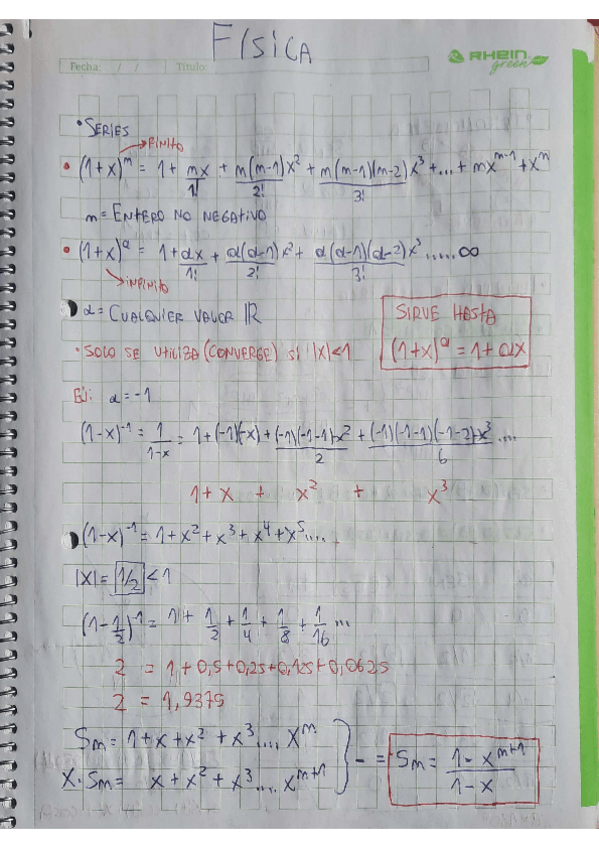 FÍSICA
RHEIN
green
Fecha: / / Título:
• SERIES
FINITO
• (1+x)^m = 1 + mx/1! + m(m-1)x²/2! + m(m-1)(m-2)x³/3! + ... + mx^m-1 + x^m
m = ENTERO NO NEGATIVO
• (1+x)^α = 1 + αx/1! + α(α-1)x²/2! + α(α-1)(α-2)x³/3! ..... ∞
INFINITO
α = CUALQUIER VALOR IR
SIRVE HASTA
(1+x)^α = 1 + αx
• SOLO SE UTILIZA (CONVERGE) SI |X|<1
EJ: α = -1
(1-x)^-1 = 1/1-x = 1 + (-1)(-x) + (-1)(-1-1)-x²/2 + (-1)(-1-1)(-1-2)-x³/6 ...
1 + x + x² + x³
(1-x)^-1 = 1 + x² + x³ + x⁴ + x⁵....
|X| = 1/2 < 1
(1-1/2)^-1 = 1 + 1/2 + 1/4 + 1/8 + 1/16 ...
2 = 1 + 0,5 + 0,25 + 0,125 + 0,0625
2 = 1,9375
Sm = 1 + x + x² + x³ ... X^m
X · Sm = x + x² + x³ ... x^m+1
} - = Sm = 1 - x^m+1/1 - x